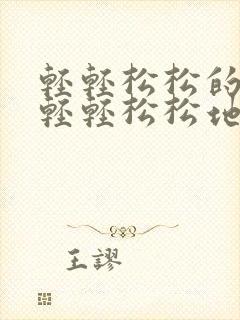 輕輕松松的
輕輕松松地
王謬